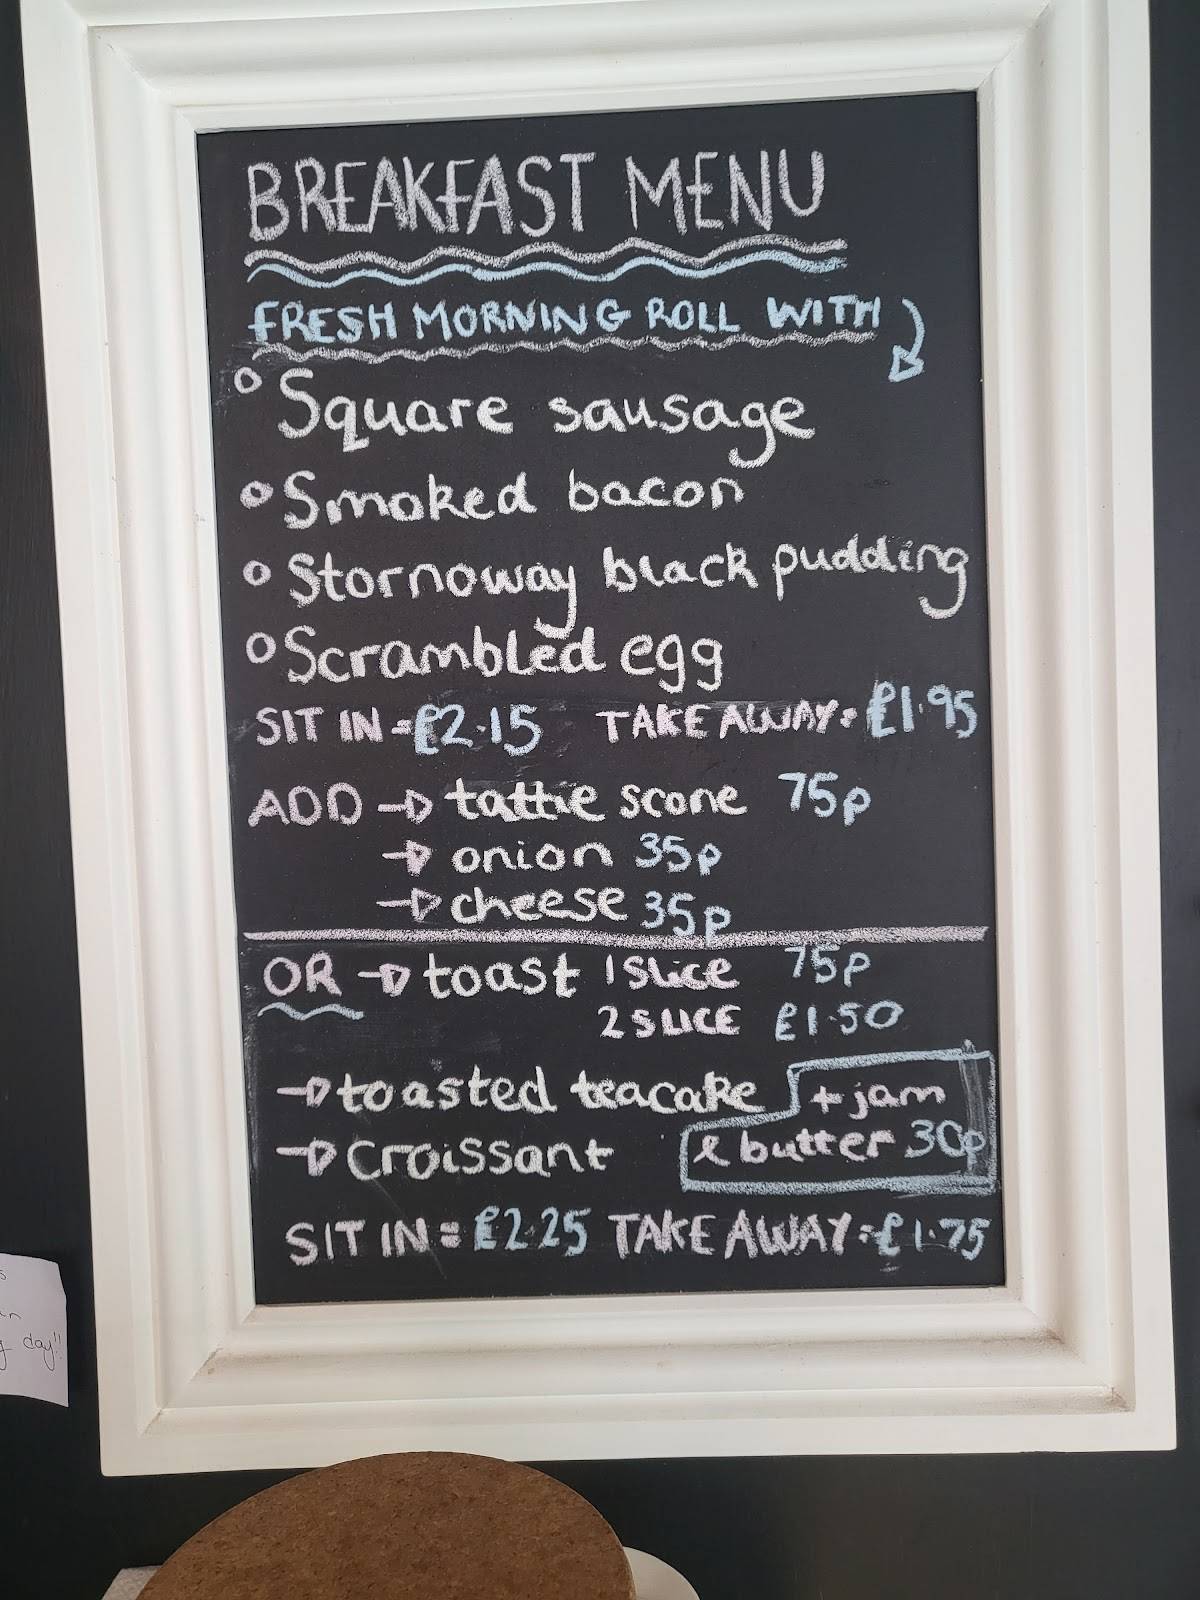 BREAKFAST MENU
FRESH MORNING ROLL WITH
Square sausage
Smoked bacon
Stornoway black pudding
Scrambled egg
SIT IN = £2.15 TAKE AWAY = £1.95
ADD → tattie scone 75p
→ onion 35p
→ cheese 35p
OR → toast 1 Slice 75p
2 SLICE £1.50
→ toasted teacake + jam
→ Croissant & butter 30p
SIT IN = £2.25 TAKE AWAY = £1.75
day!!